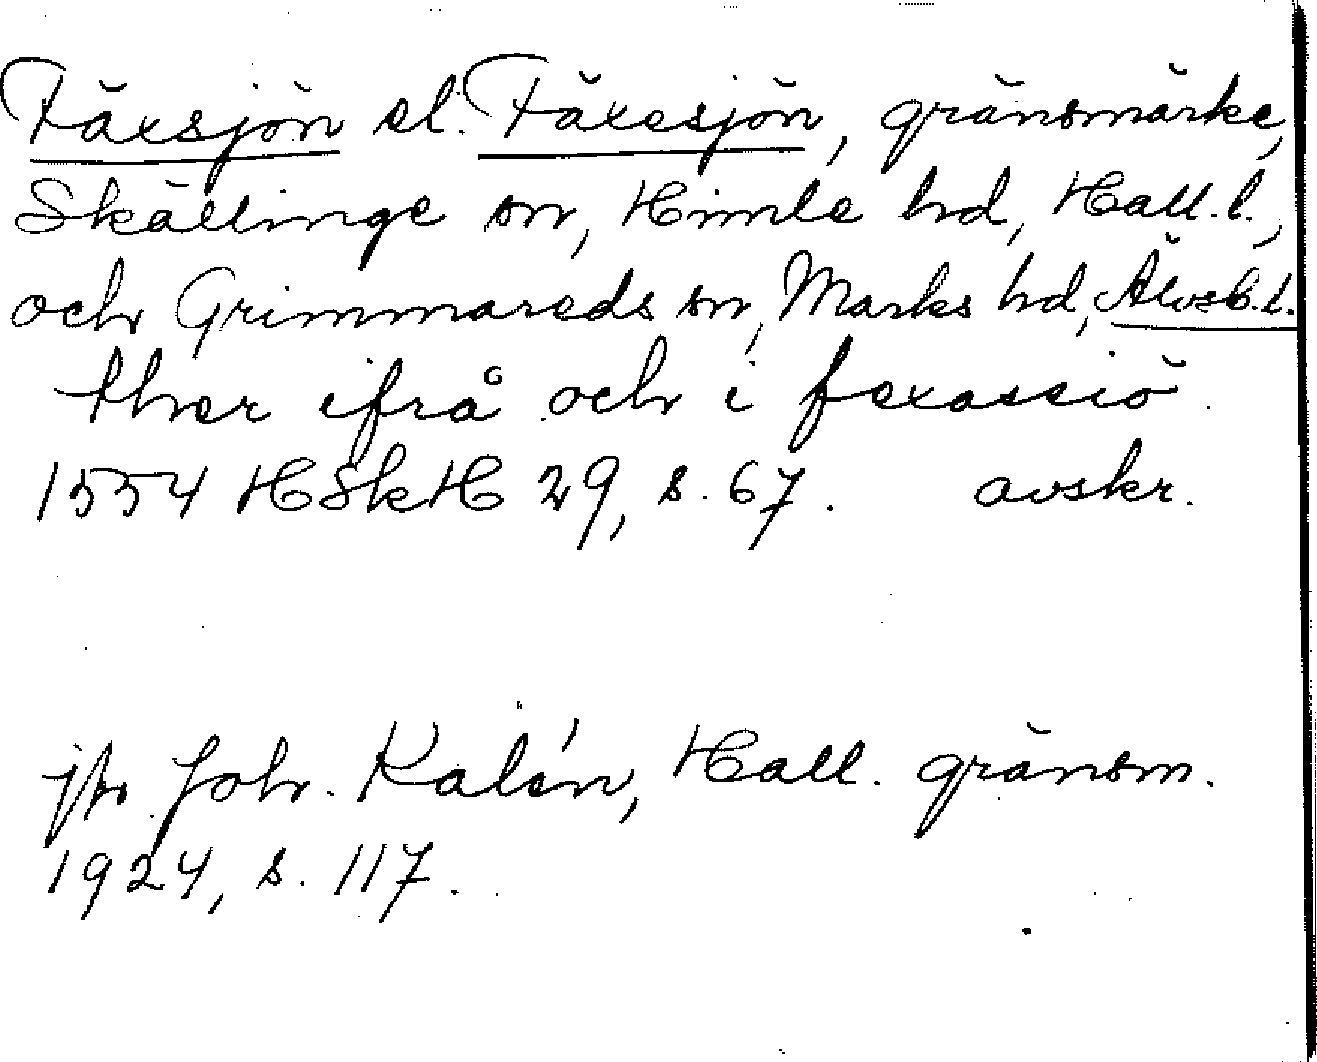 Fäxsjön el. Fäxesjön, gränsmärke,
Skällinge sn, Himle hd, Hall. l.,
och Grimmareds sn, Marks hd, Älvsb. l.
ther ifrå och i fexassiö.
1554 HSkH 29, s. 67. avskr.
jfr Joh. Kalén, Hall. gränsm.
1924, s. 117.